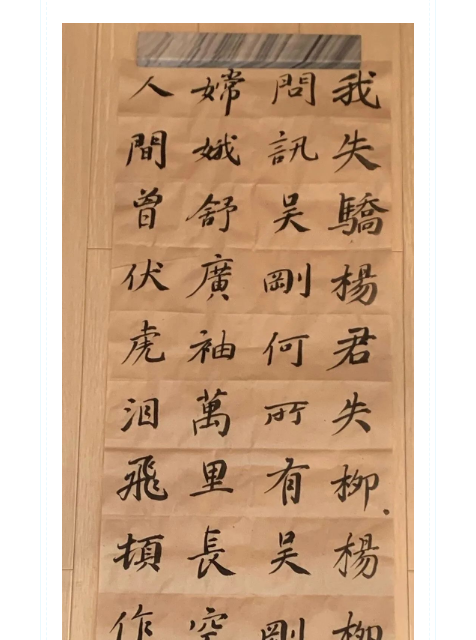 我失驕楊君失柳、楊柳
問訊吴剛何所有吴剛
嫦娥舒廣袖萬里長空
人間曾伏虎泪飛頓作